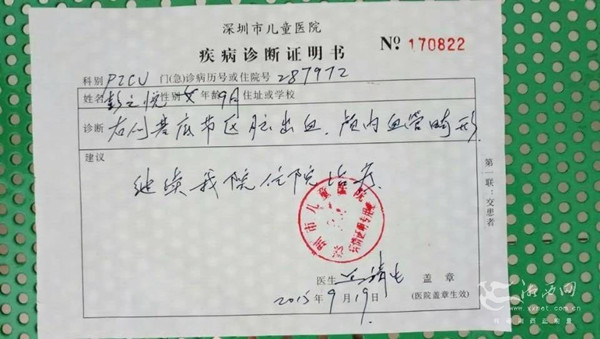 深圳市儿童医院
疾病诊断证明书 № 170822
科别 PICU 门(急)诊病历号或住院号 287972
姓名 彭之悦 性别 女 年龄 9月 住址或学校
诊断 右侧基底节区脑出血,颅内血管畸形
建议
继续我院住院治疗
深圳市儿童医院
医生 盖章
2015年9月19日 (医院盖章生效)
第一联:交患者
湘西网